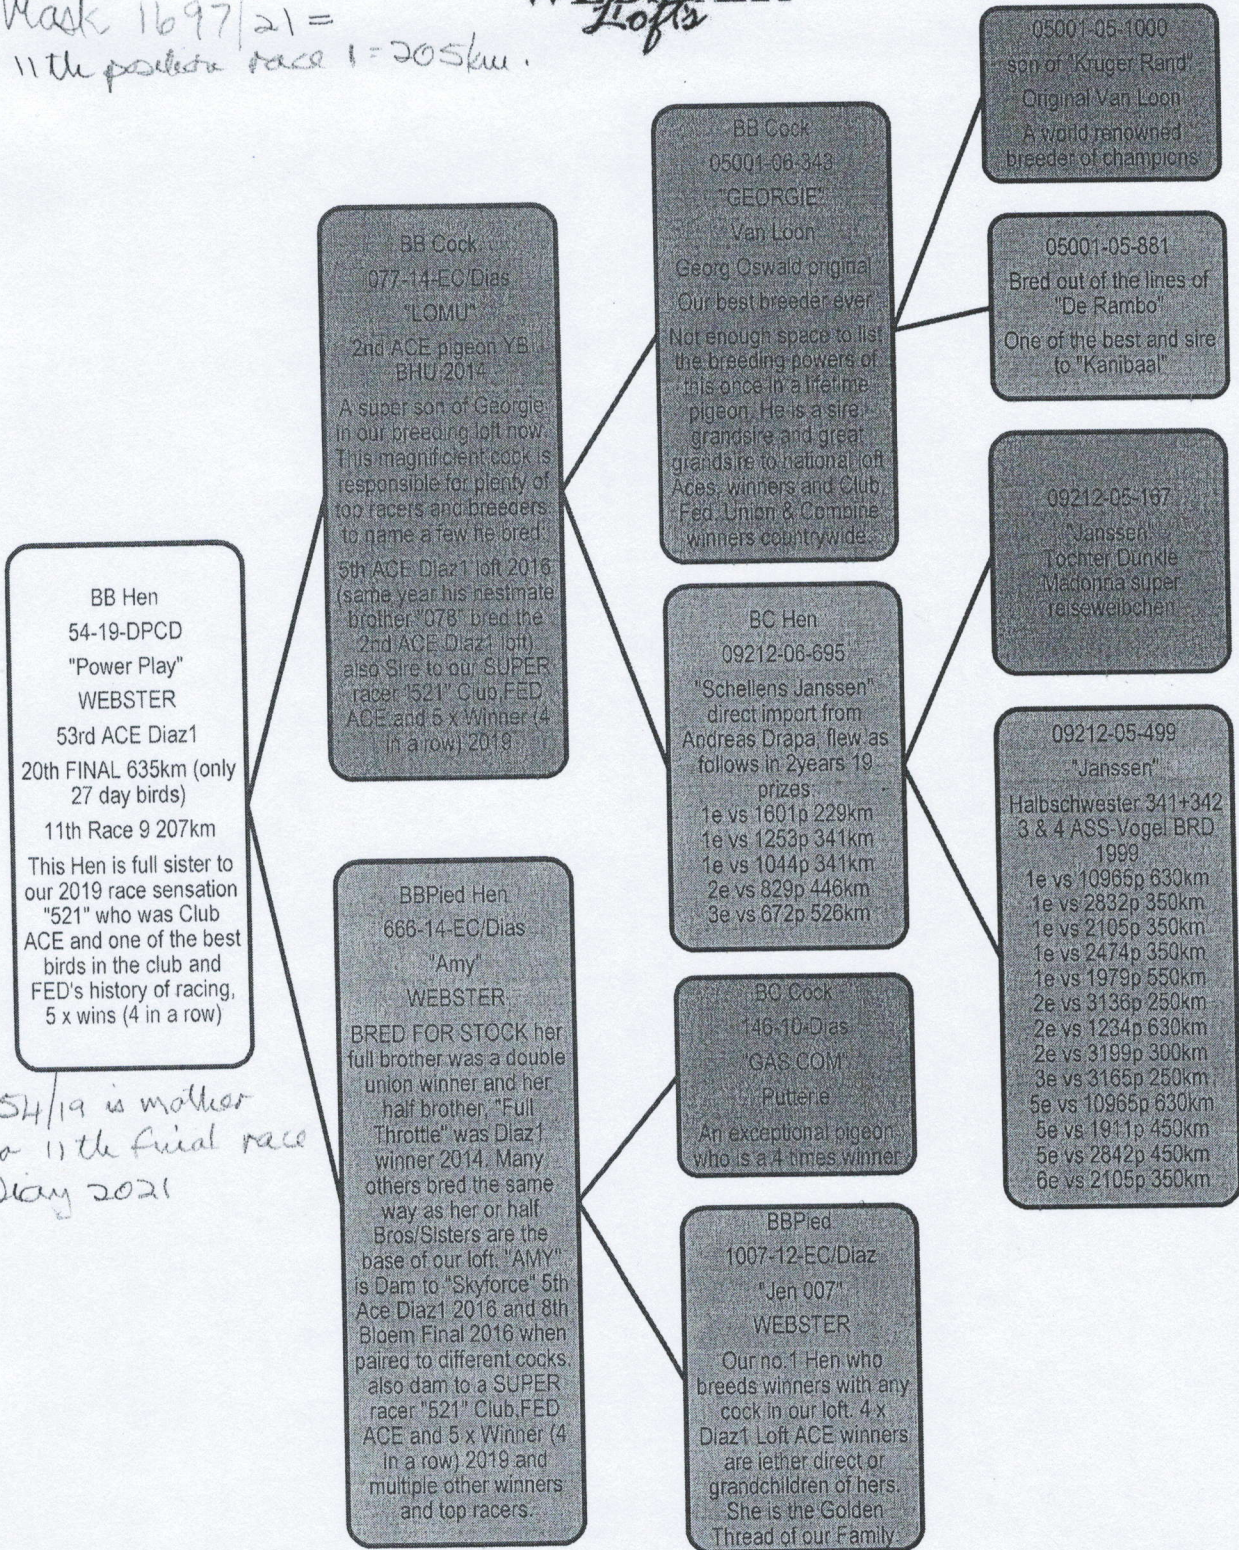 Mask 1697/21 =
11th position race 1 = 205km.
Lofts
BB Hen
54-19-DPCD
"Power Play"
WEBSTER
53rd ACE Diaz1
20th FINAL 635km (only
27 day birds)
11th Race 9 207km
This Hen is full sister to
our 2019 race sensation
"521" who was Club
ACE and one of the best
birds in the club and
FED's history of racing,
5 x wins (4 in a row)
54/19 is mother
11th final race
2021
BB Cock
077-14-EC/Dias
"LOMU"
2nd ACE pigeon YB
BHU 2014
A super son of Georgie
in our breeding loft now.
This magnificient cock is
responsible for plenty of
top racers and breeders
to name a few he bred
5th ACE Diaz1 loft 2016
(same year his nestmate
brother "078" bred the
2nd ACE Diaz1 loft)
also Sire to our SUPER
racer "521" Club,FED
ACE and 5 x Winner (4
in a row) 2019
BBPied Hen
666-14-EC/Dias
"Amy"
WEBSTER
BRED FOR STOCK her
full brother was a double
union winner and her
half brother, "Full
Throttle" was Diaz1
winner 2014. Many
others bred the same
way as her or half
Bros/Sisters are the
base of our loft. "AMY"
is Dam to "Skyforce" 5th
Ace Diaz1 2016 and 8th
Bloem Final 2016 when
paired to different cocks.
also dam to a SUPER
racer "521" Club,FED
ACE and 5 x Winner (4
in a row) 2019 and
multiple other winners
and top racers.
BB Cock
05001-06-343
"GEORGIE"
Van Loon
Georg Oswald original
Our best breeder ever
Not enough space to list
the breeding powers of
this once in a lifetime
pigeon. He is a sire,
grandsire and great
grandsire to national loft
Aces, winners and Club,
Fed, Union & Combine
winners countrywide.
BC Hen
09212-06-695
"Schellens Janssen"
direct import from
Andreas Drapa, flew as
follows in 2years 19
prizes:
1e vs 1601p 229km
1e vs 1253p 341km
1e vs 1044p 341km
2e vs 829p 446km
3e vs 672p 526km
BC Cock
146-10-Dias
"GAS.COM"
Putterie
An exceptional pigeon
who is a 4 times winner
BBPied
1007-12-EC/Diaz
"Jen 007"
WEBSTER
Our no.1 Hen who
breeds winners with any
cock in our loft. 4 x
Diaz1 Loft ACE winners
are iether direct or
grandchildren of hers.
She is the Golden
Thread of our Family.
05001-05-1000
son of "Kruger Rand"
Original Van Loon
A world renowned
breeder of champions
05001-05-881
Bred out of the lines of
"De Rambo"
One of the best and sire
to "Kanibaal"
09212-05-167
"Janssen"
Tochter Dunkle
Madonna super
reiseweibchen
09212-05-499
"Janssen"
Halbschwester 341+342
3 & 4 ASS-Vogel BRD
1999
1e vs 10965p 630km
1e vs 2832p 350km
1e vs 2105p 350km
1e vs 2474p 350km
1e vs 1979p 550km
2e vs 3136p 250km
2e vs 1234p 630km
2e vs 3199p 300km
3e vs 3165p 250km
5e vs 10965p 630km
5e vs 1911p 450km
5e vs 2842p 450km
6e vs 2105p 350km